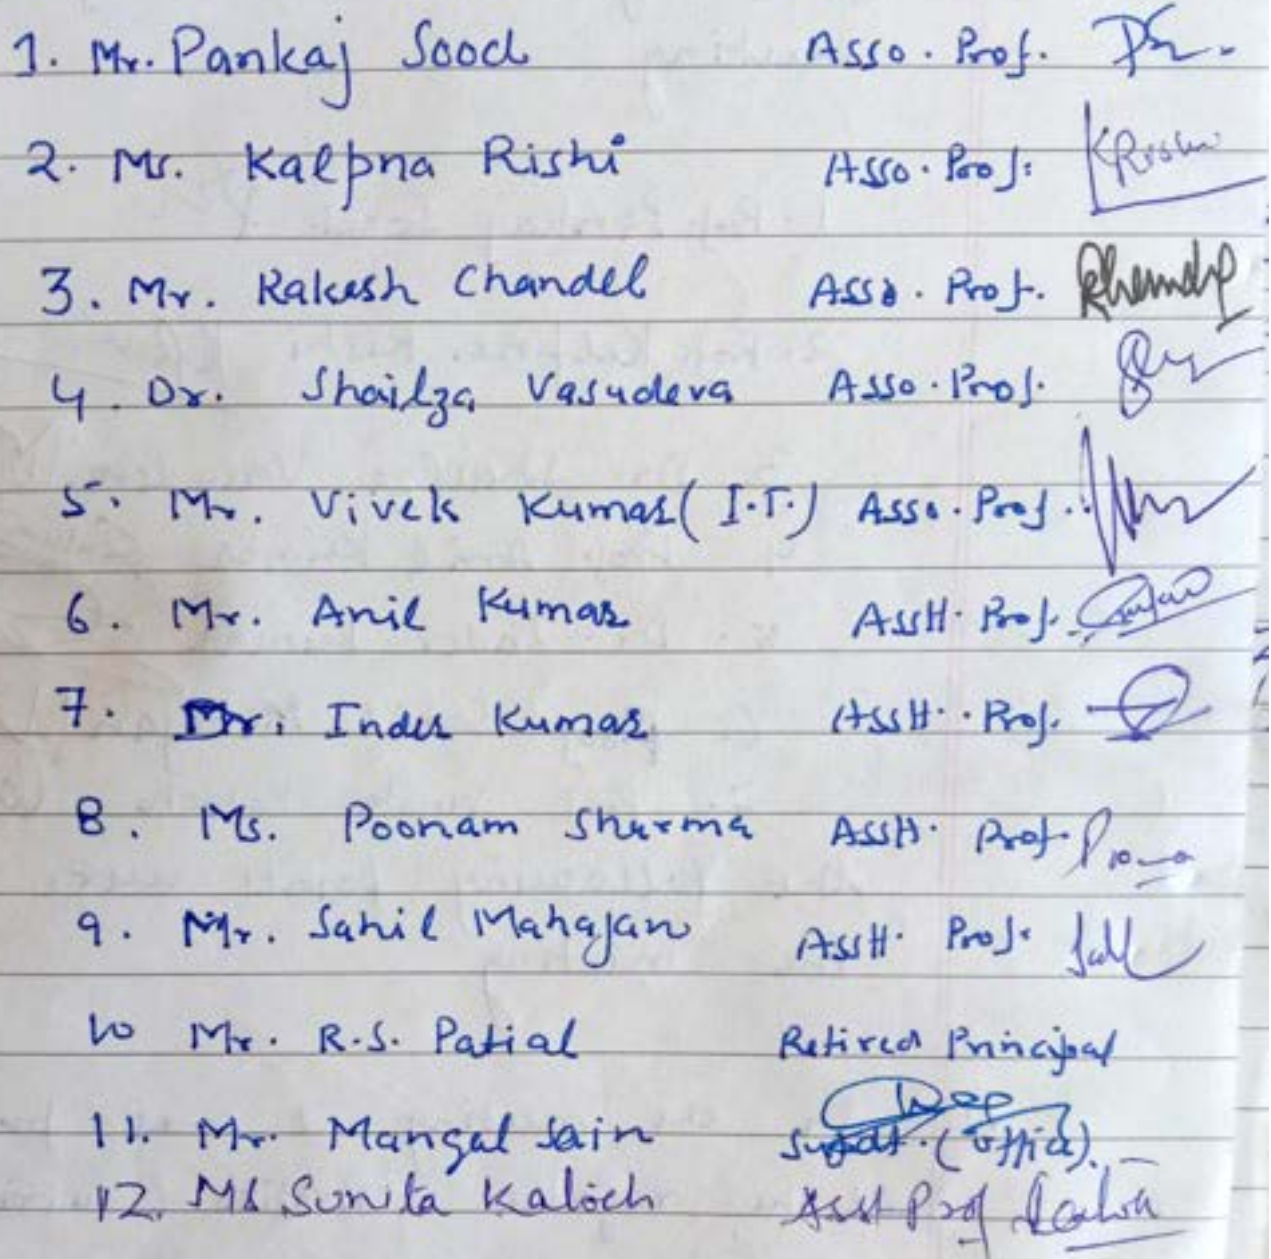 1. Mr. Pankaj Sood Asso. Prof.
2. Ms. Kalpna Rishi Asso. Prof. KRishi
3. Mr. Rakesh Chandel Asso. Prof.
4. Dr. Shailza Vasudeva Asso. Prof.
5. Mr. Vivek Kumar (I.T.) Asso. Prof.
6. Mr. Anil Kumar Asstt. Prof.
7. Dr. Inder Kumar Asstt. Prof.
8. Ms. Poonam Sharma Asstt. Prof.
9. Mr. Sahil Mahajan Asstt. Prof.
10 Mr. R.S. Patial Retired Principal
11. Mr. Mangal Sain Supdt. (Office).
12. Ms Sunita Kaloch Asst Prof